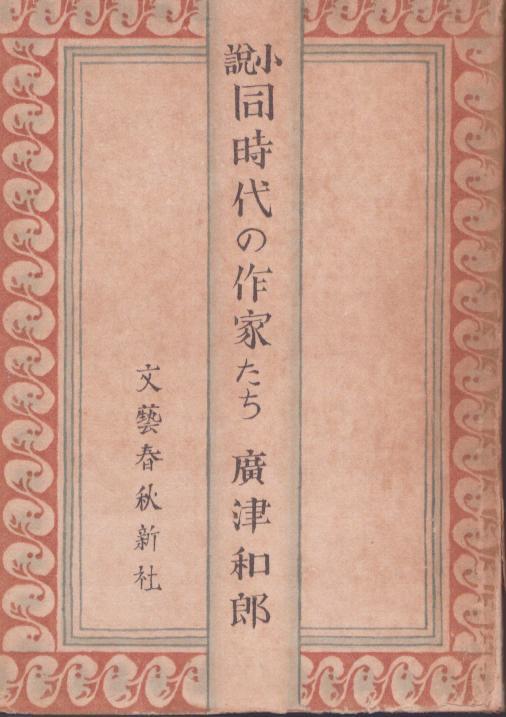 小説 同時代の作家たち 廣津和郎
文藝春秋新社